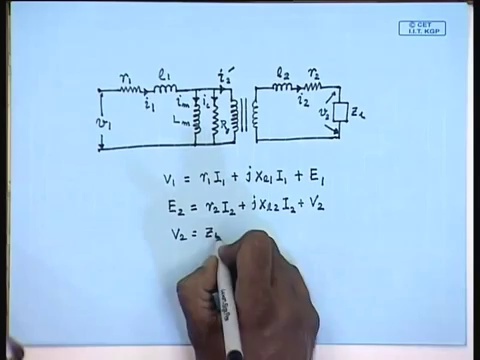 © CET
I.I.T. KGP
r₁ l₁ i₂′ l₂ r₂
i₁ iₘ i_c i₂
v₁ Lₘ v₂ Z_L
V₁ = r₁I₁ + jXₗ₁I₁ + E₁
E₂ = r₂I₂ + jXₗ₂I₂ + V₂
V₂ = Z_L